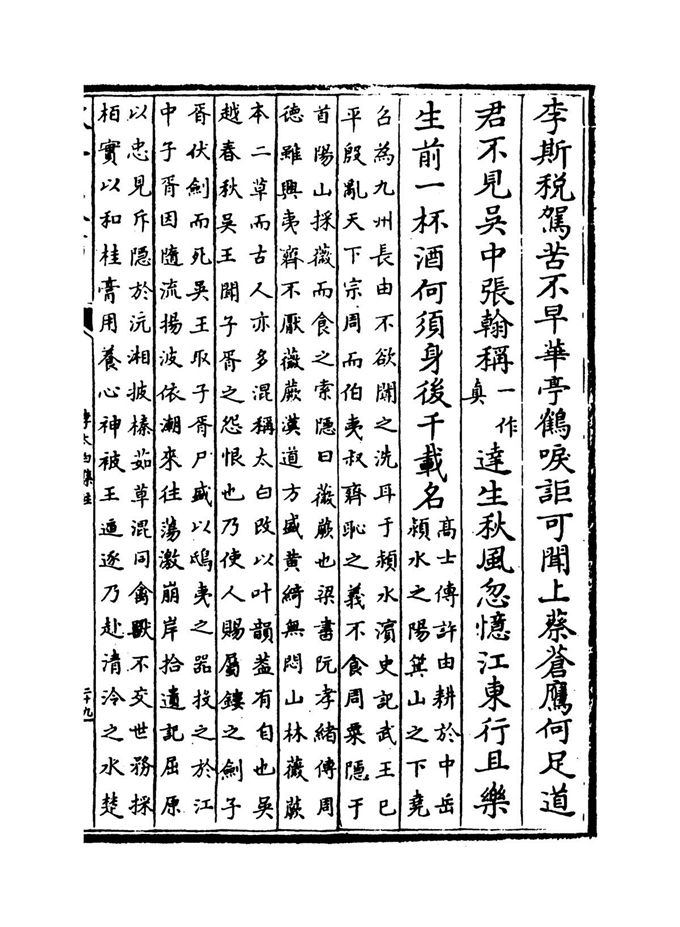 李斯稅駕苦不早華亭鶴唳詎可聞上蔡蒼鷹何足道
君不見吳中張翰稱一作真達生秋風忽憶江東行且樂
生前一杯酒何須身後千載名
髙士傳許由耕於中岳
潁水之陽箕山之下堯
召為九州長由不欲聞之洗耳于潁水濵史記武王已
平殷亂天下宗周而伯夷叔齊恥之義不食周粟隱于
首陽山採薇而食之索隱曰薇蕨也梁書阮孝緒傳周
德雖興夷齊不厭薇蕨漢道方盛黄綺無悶山林薇蕨
本二草而古人亦多混稱太白改以叶韻葢有自也吳
越春秋吳王聞子胥之怨恨也乃使人賜屬鏤之劍子
胥伏劍而死吳王取子胥尸盛以鴟夷之器投之於江
中子胥因隨流揚波依潮來往蕩激崩岸拾遺記屈原
以忠見斥隠於沅湘披榛茹草混同禽獸不交世務採
栢實以和桂膏用養心神被王逼逐乃赴清泠之水楚
李太白集注
二十九